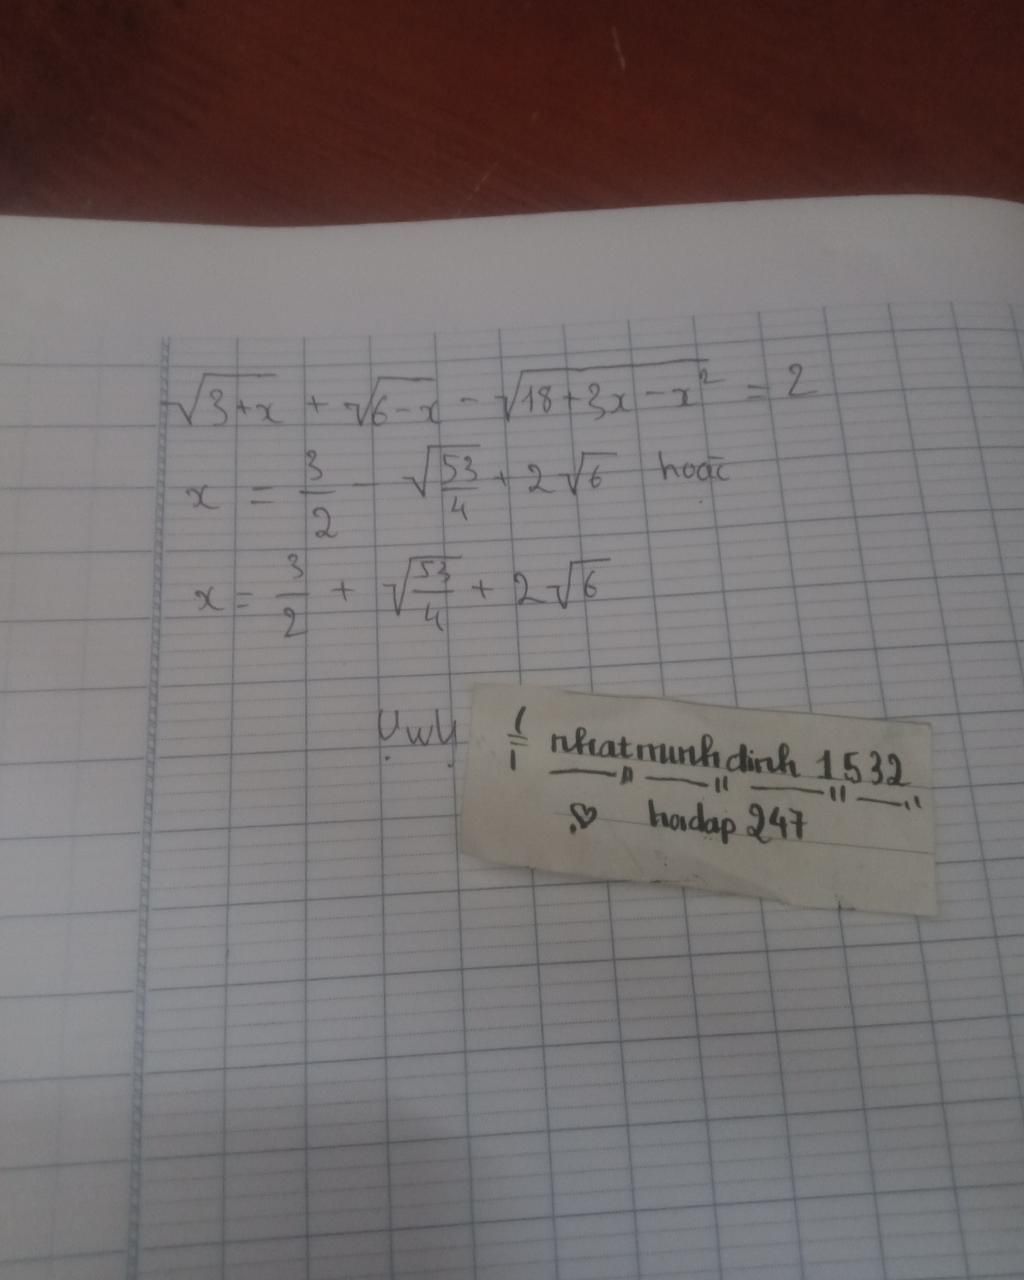 √3+x + √6-x - √18+3x-x² = 2
x = 3/2 - √53/4 + 2√6 hoặc
x = 3/2 + √53/4 + 2√6
UwU
nhatminhdinh 1532
hoidap 247